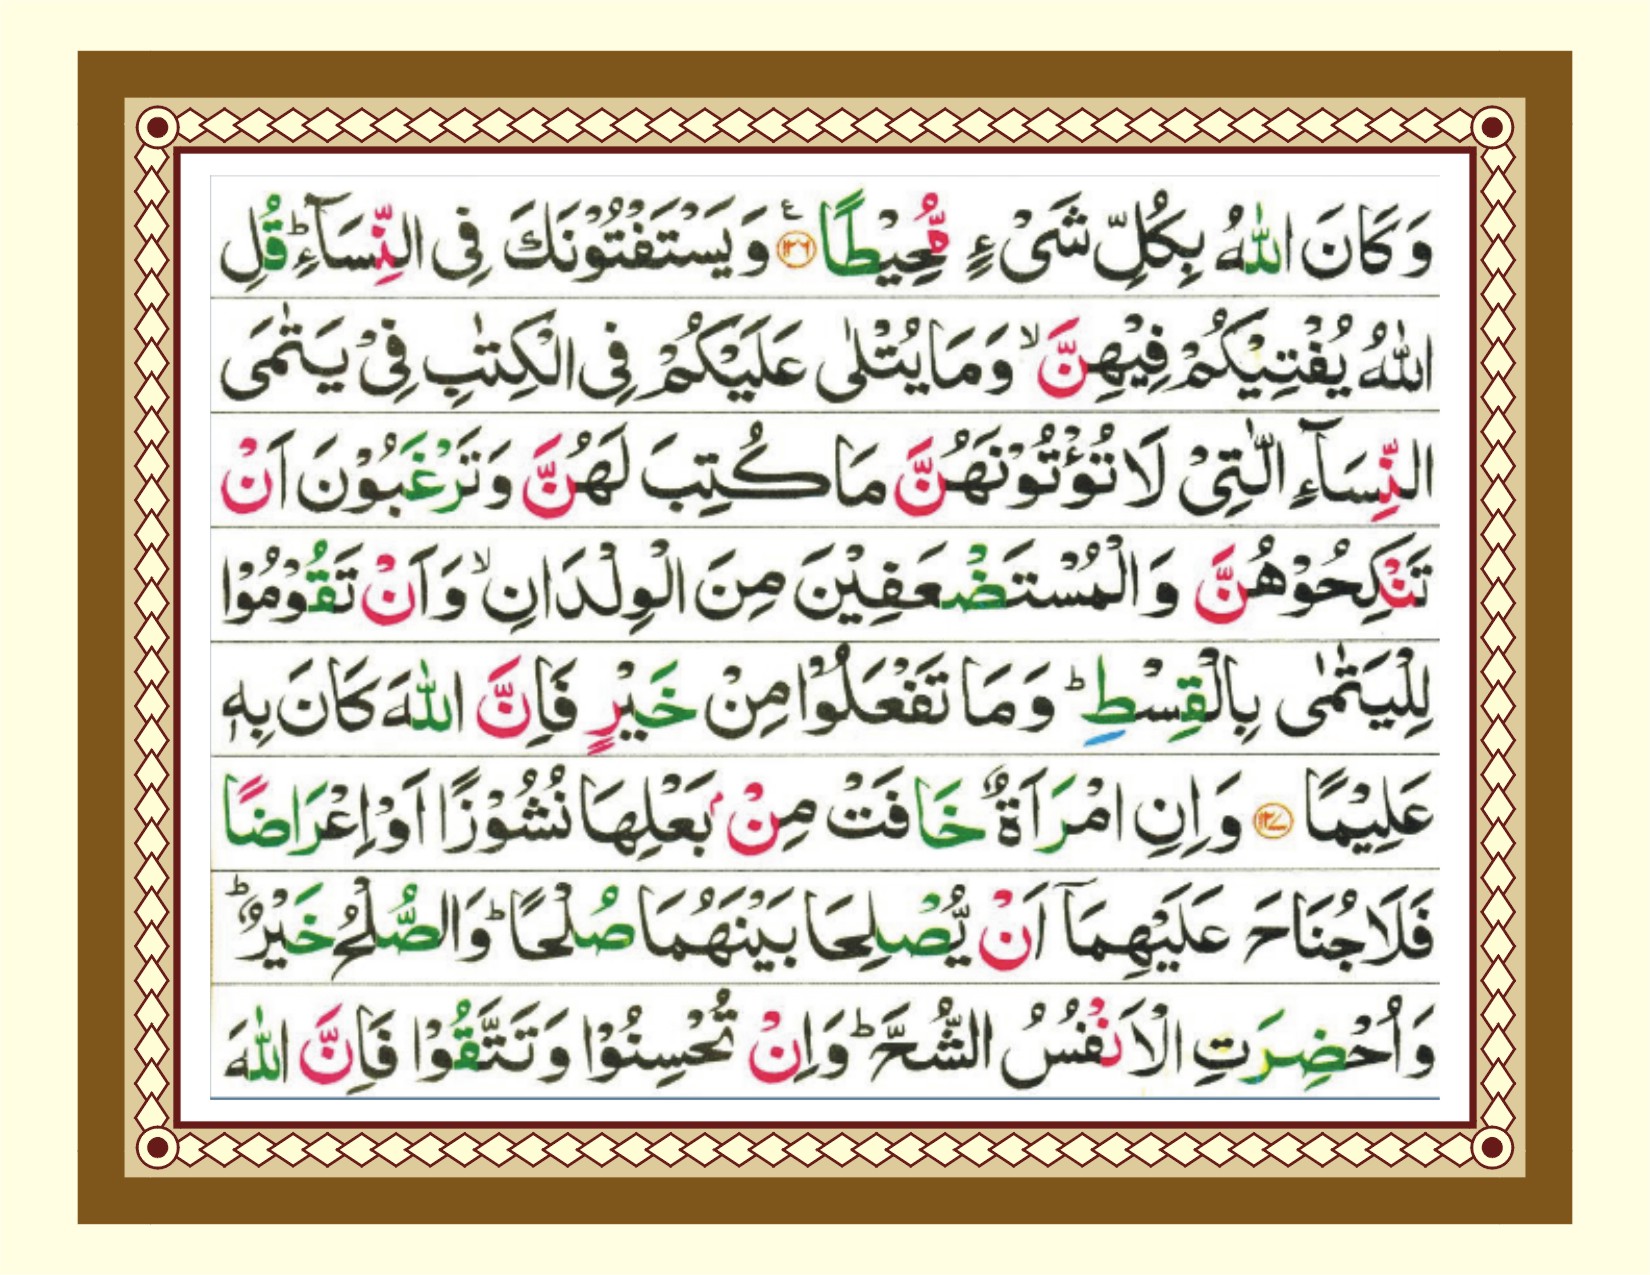 وَكَانَ اللّٰهُ بِكُلِّ شَیْءٍ مُّحِیْطًا ﴿۱۲۶﴾ۧ وَیَسْتَفْتُوْنَكَ فِی النِّسَآءِؕ قُلِ
اللّٰهُ یُفْتِیْكُمْ فِیْهِنَّۙ وَمَا یُتْلٰی عَلَیْكُمْ فِی الْكِتٰبِ فِیْ یَتٰمَی
النِّسَآءِ الّٰتِیْ لَا تُؤْتُوْنَهُنَّ مَا كُتِبَ لَهُنَّ وَتَرْغَبُوْنَ اَنْ
تَنْكِحُوْهُنَّ وَالْمُسْتَضْعَفِیْنَ مِنَ الْوِلْدَانِۙ وَاَنْ تَقُوْمُوْا
لِلْیَتٰمٰی بِالْقِسْطِؕ وَمَا تَفْعَلُوْا مِنْ خَیْرٍ فَاِنَّ اللّٰهَ كَانَ بِهٖ
عَلِیْمًا ﴿۱۲۷﴾ وَاِنِ امْرَاَةٌ خَافَتْ مِنْۢ بَعْلِهَا نُشُوْزًا اَوْ اِعْرَاضًا
فَلَا جُنَاحَ عَلَیْهِمَاۤ اَنْ یُّصْلِحَا بَیْنَهُمَا صُلْحًاؕ وَالصُّلْحُ خَیْرٌؕ
وَاُحْضِرَتِ الْاَنْفُسُ الشُّحَّؕ وَاِنْ تُحْسِنُوْا وَتَتَّقُوْا فَاِنَّ اللّٰهَ